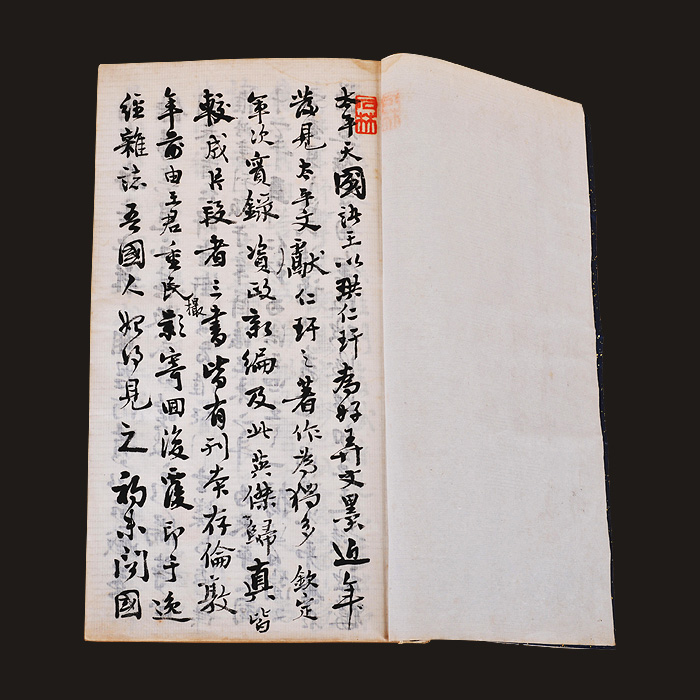 太平天國諸王以洪仁玕為好弄文墨近年
發見太平文獻仁玕之著作為獨多欽定
軍次實錄資政新編及此英傑歸真皆
較成片段者三書皆有刊本存倫敦
年前由王君重民撮影寄回後覆印于逸
經雜誌吾國人始得見之初未聞國